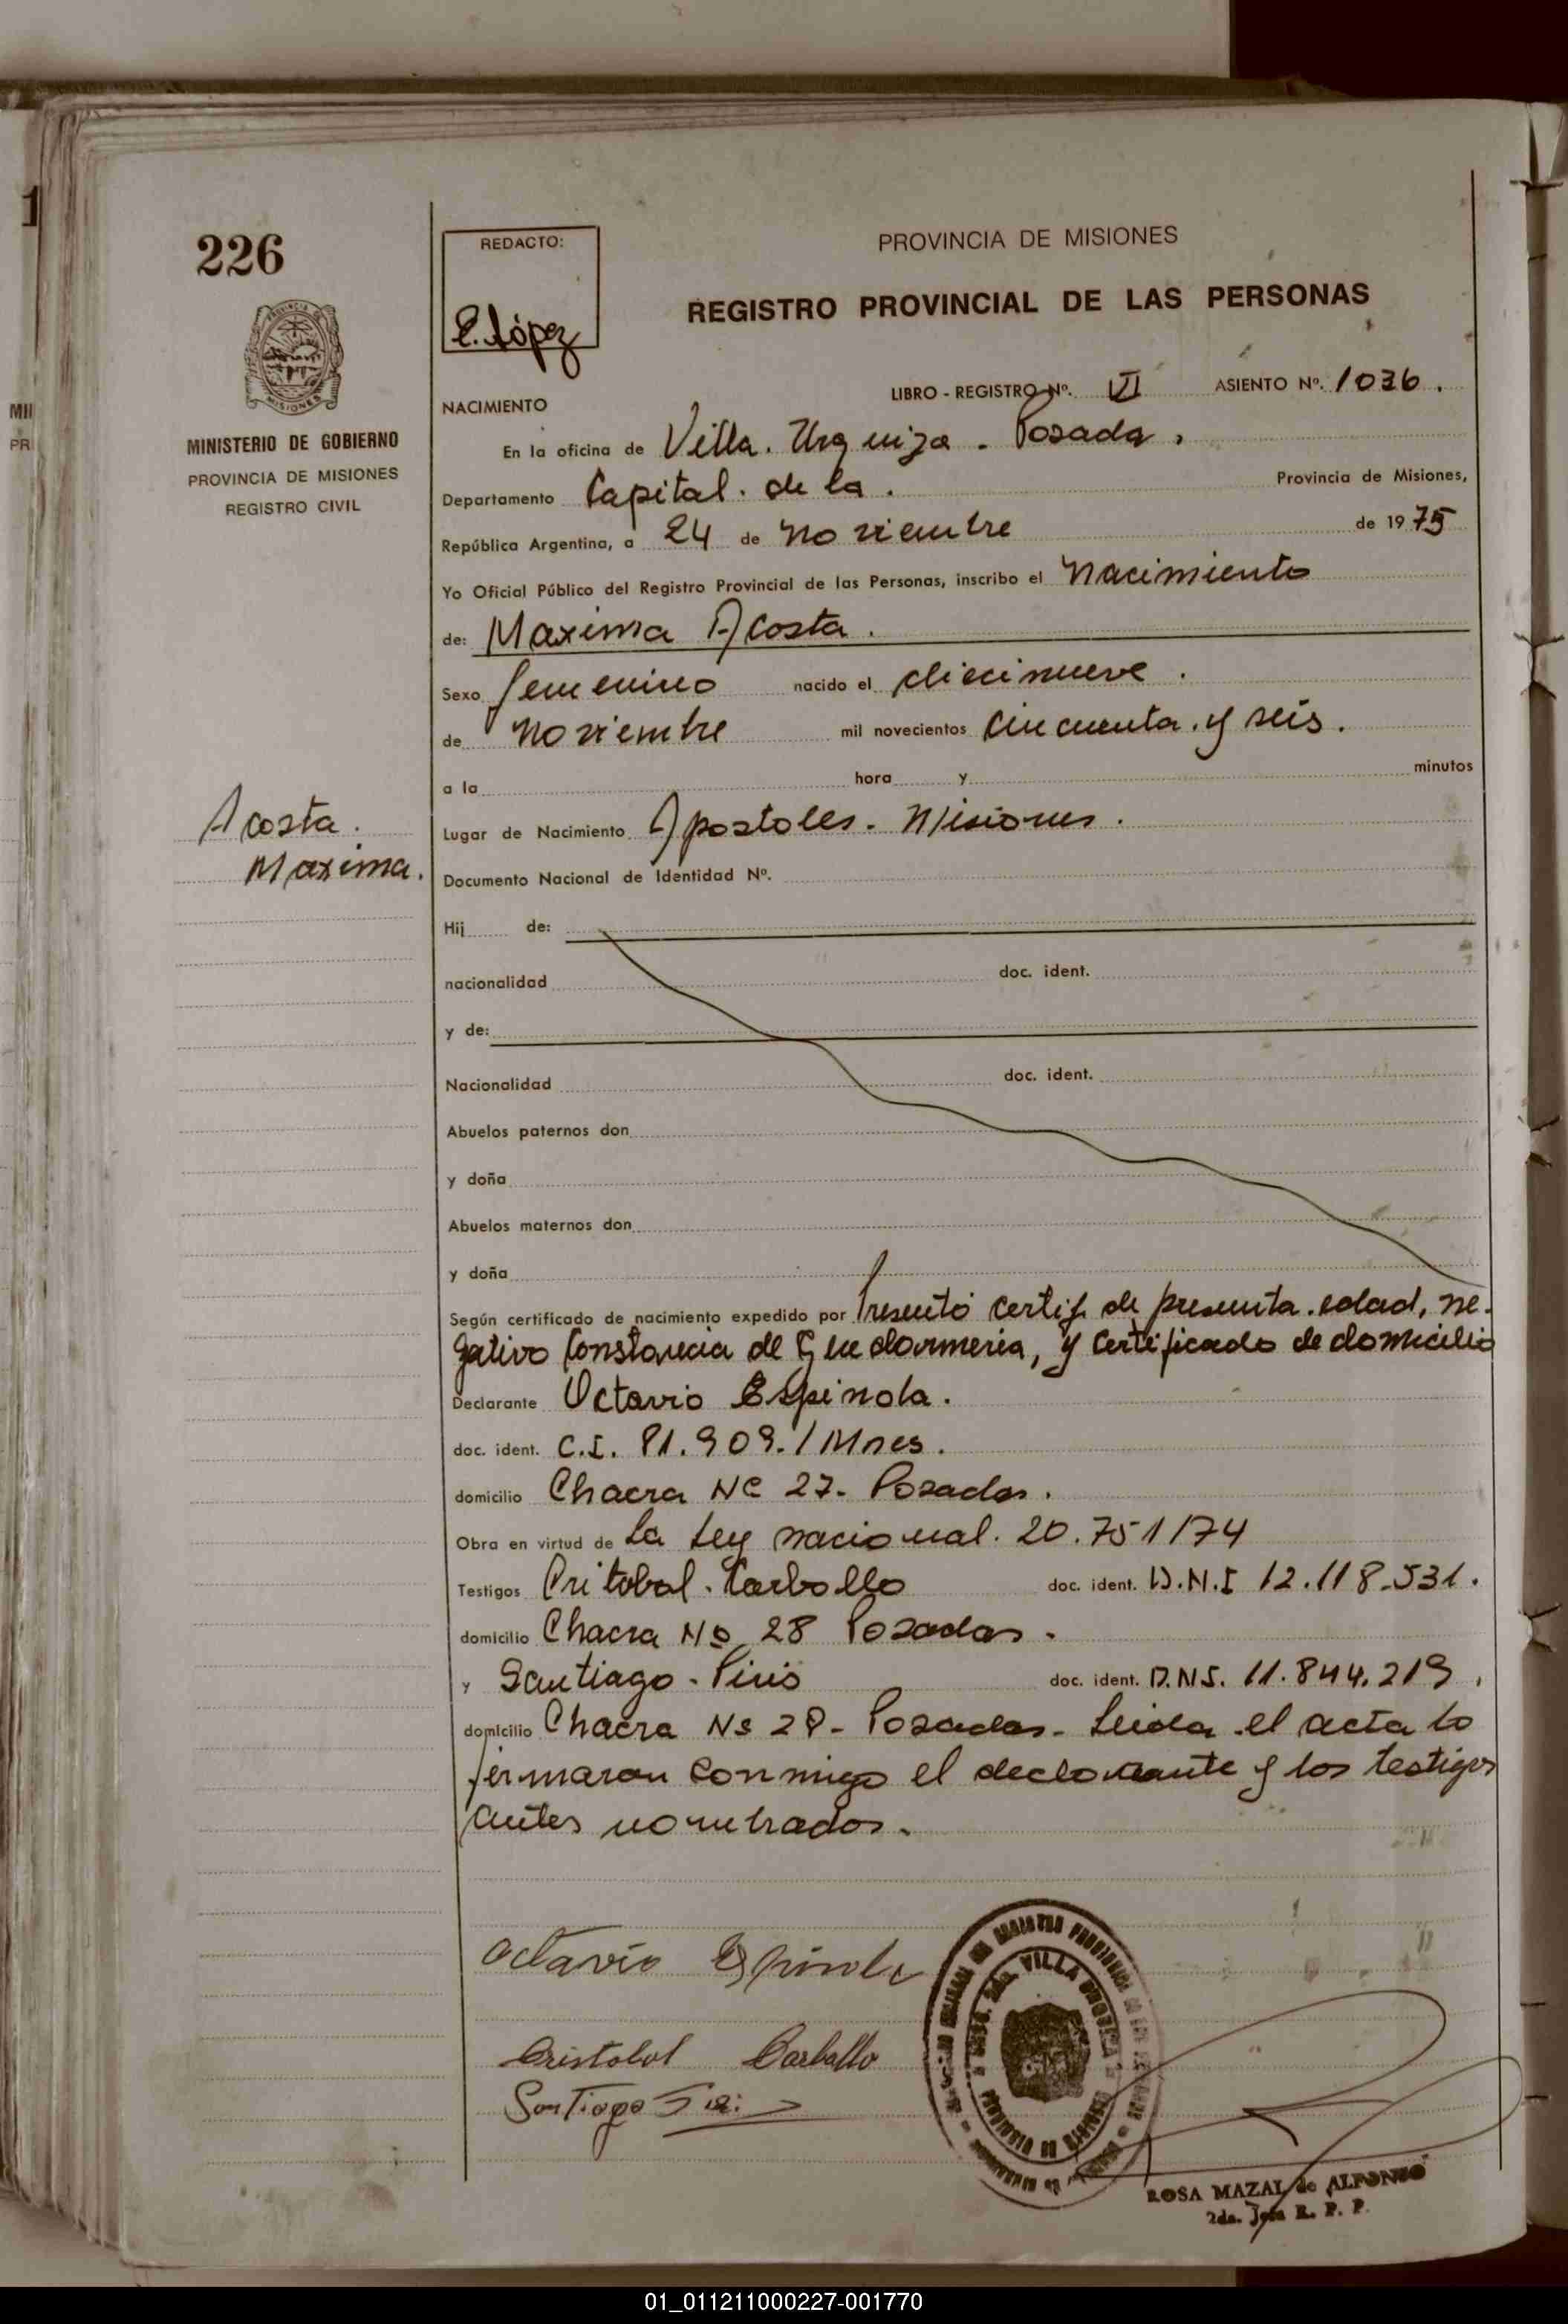 226
REDACTO:
E. López
PROVINCIA DE MISIONES
REGISTRO PROVINCIAL DE LAS PERSONAS
MINISTERIO DE GOBIERNO
PROVINCIA DE MISIONES
REGISTRO CIVIL
LIBRO - REGISTRO Nº. VI ASIENTO Nº. 1036.
NACIMIENTO
En la oficina de Villa. Urquiza - Posada,
Departamento Capital. de la. Provincia de Misiones,
República Argentina, a 24 de Noviembre de 1975
Yo Oficial Público del Registro Provincial de las Personas, inscribo el Nacimiento
de: Maxima Acosta.
Sexo femenino nacido el diecinueve.
de Noviembre mil novecientos cincuenta. y seis.
a la hora y minutos
Acosta.
Maxima.
Lugar de Nacimiento Apostoles. Misiones.
Documento Nacional de Identidad Nº.
Hij de:
nacionalidad doc. ident.
y de:
Nacionalidad doc. ident.
Abuelos paternos don
y doña
Abuelos maternos don
y doña
Según certificado de nacimiento expedido por Presentó certif. de presunta. edad, ne-
gativo Constancia de Gendarmeria, y Certificado de domicilio
Declarante Octavio Espinola.
doc. ident. C.I. 81.909./Mnes.
domicilio Chacra Nº 27- Posadas.
Obra en virtud de La Ley nacional. 20.751/74
Testigos Critobal. Carballo doc. ident. D.N.I 12.118.531.
domicilio Chacra Nº 28 Posadas.
y Santiago - Piris doc. ident. D.N.I. 11.844.219.
domicilio Chacra Nº 28- Posadas- Leida el acta lo
firmaron conmigo el declarante y los testigos
antes nombrados.
Octavio Espinola
Cristobal Carballo
Santiago
VILLA URQUIZA
PROVINCIA DE MISIONES
ROSA MAZAL de ALFONSO
2da. Jefa R. P. P.
01_011211000227-001770